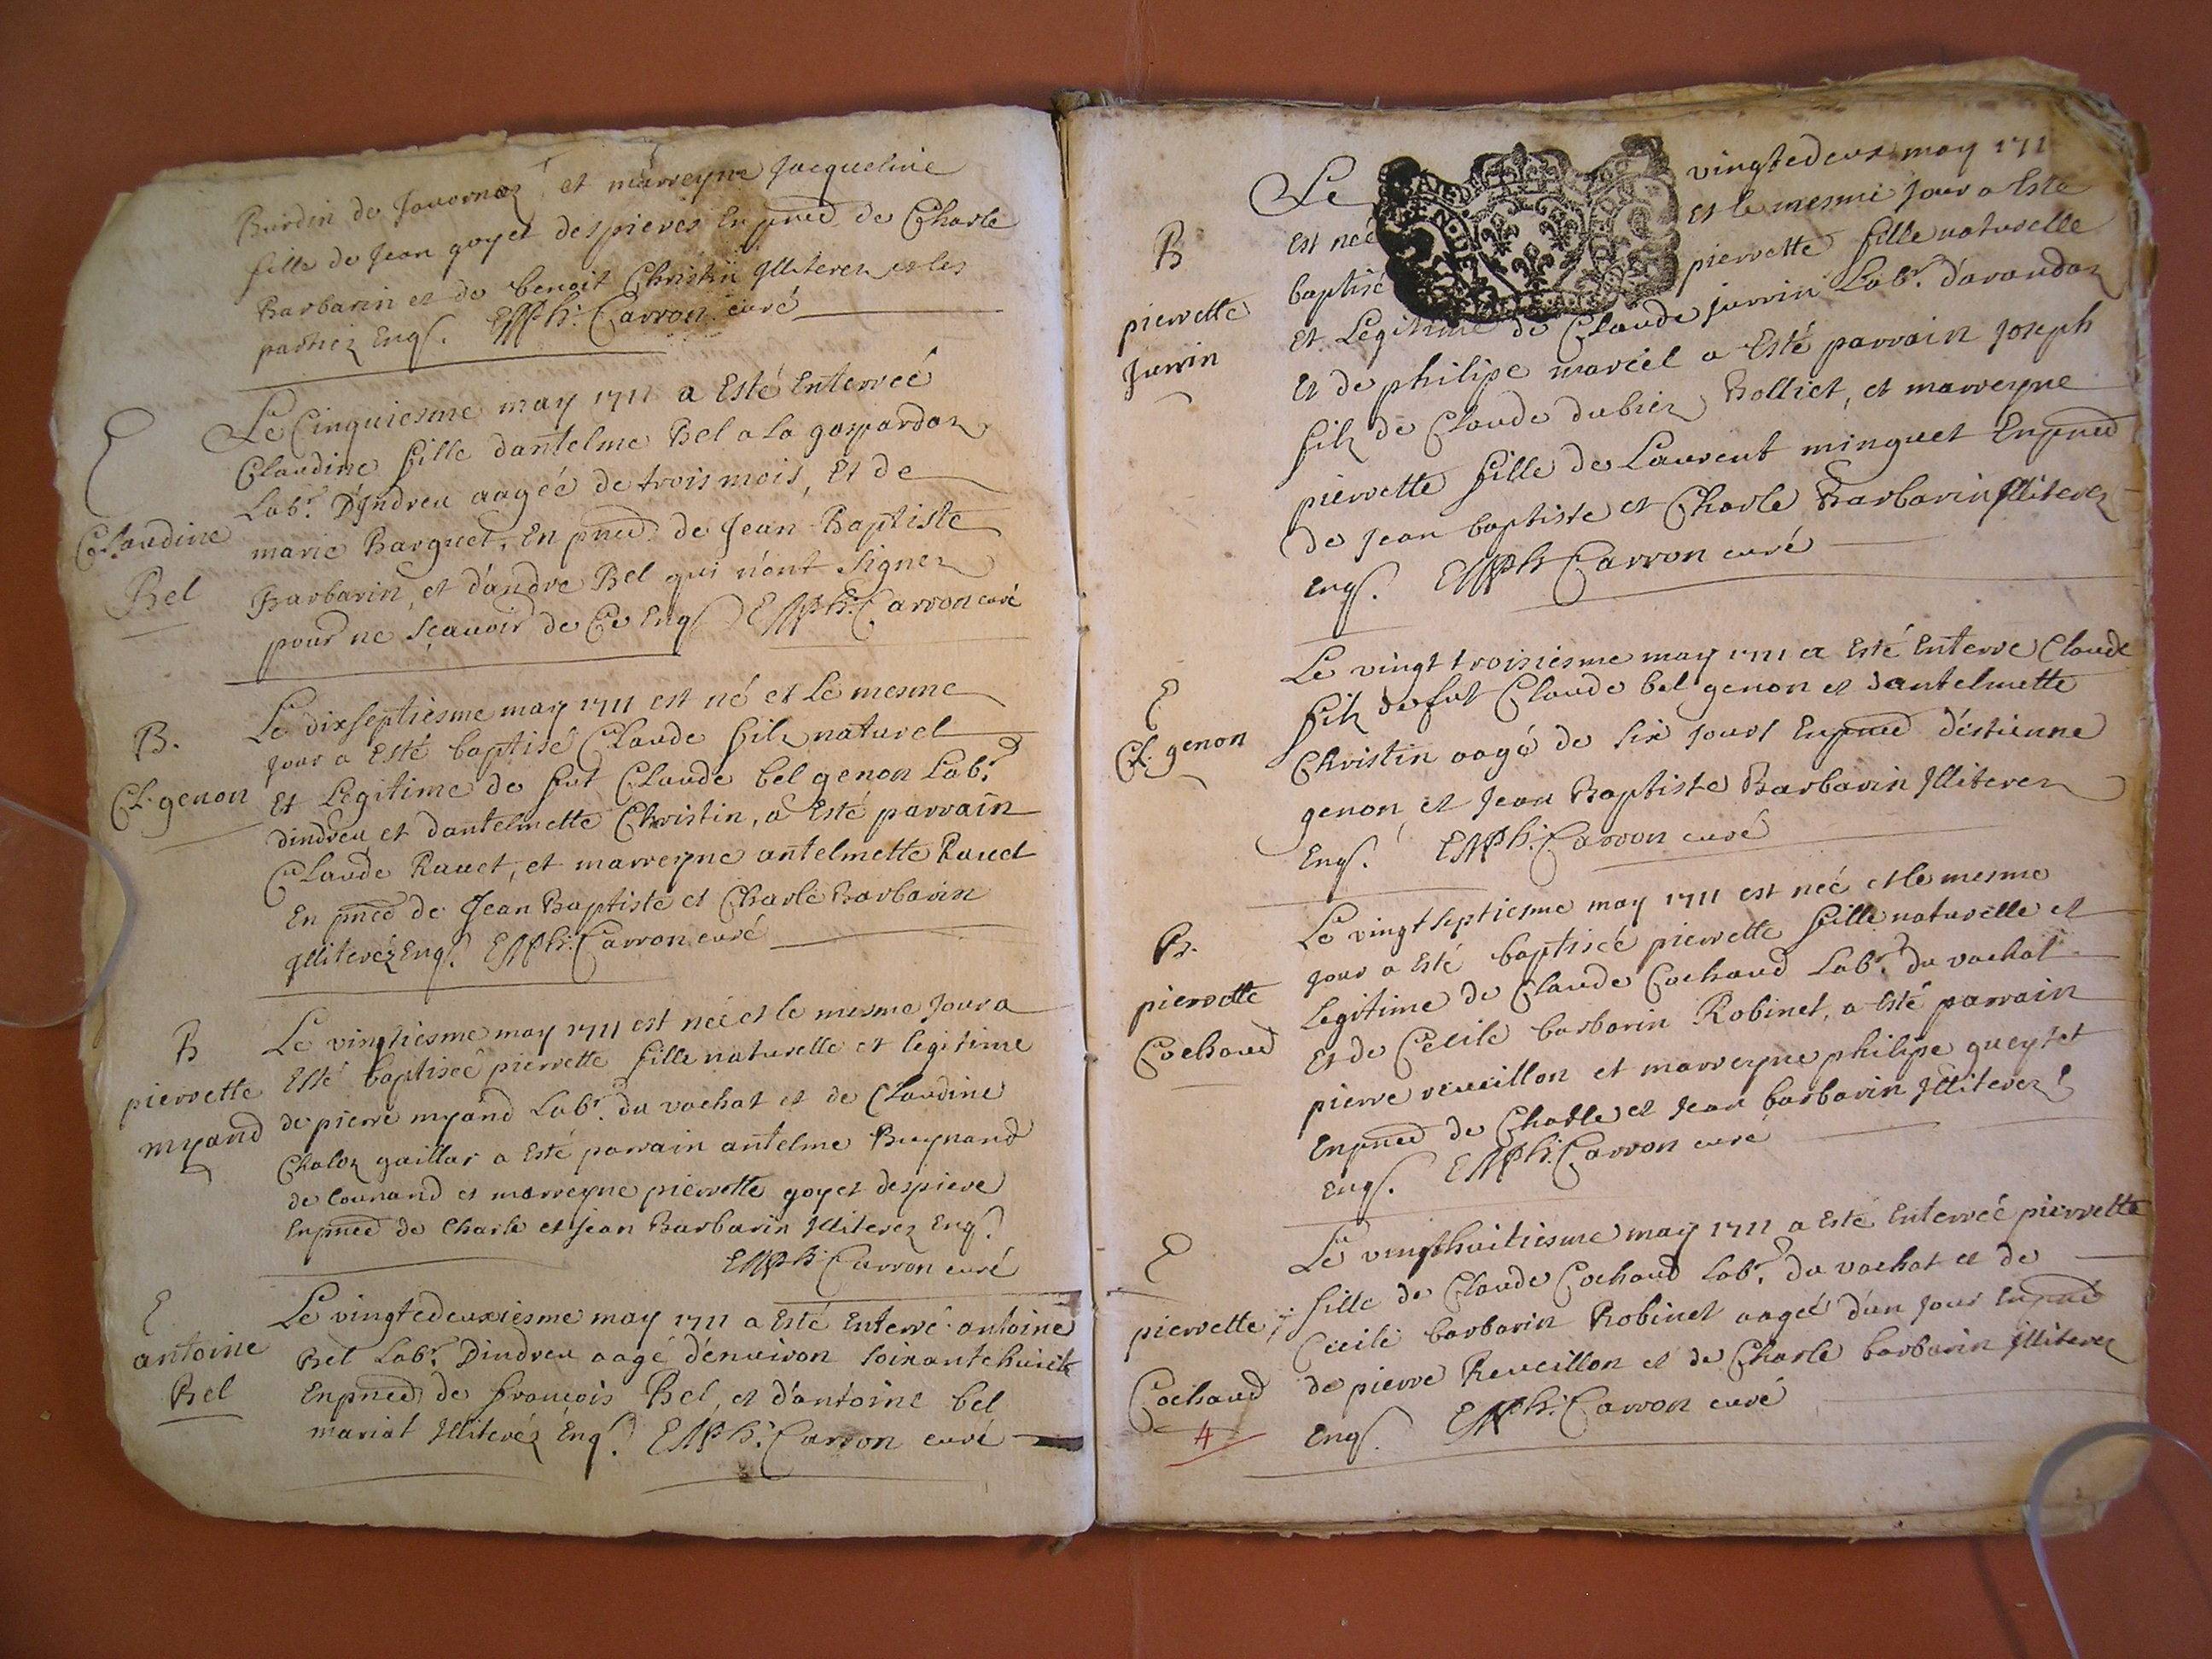 Burdin de Jouvornaz, et marreyne Jacqueline
fille de Jean goyet despieres En pned de Charle
Barbarin et de benoit Christin Illiterez et les
partiez Enqs. EMPh: Carron curé
E
Claudine
Bel
Le Cinquiesme may 1711 a Esté Enterreé
Claudine fille dantelme Bel a la gaspardaz
Labr. D'Indreu aageé de trois mois, Et de
marie Barquet, En pned de Jean Baptiste
Barbarin, et d'andre Bel qui n'ont Signez
pour ne sçauoir de Ce Enqs EMPh: Carron curé
B.
Cl. genon
Le dixseptiesme may 1711 est né et Le mesme
Jour a Esté baptisé Claude filz naturel
Et Legitime de fut Claude bel genon Labr.
dindreu et dantelmette Christin, a Esté parrain
Claude Rauet, et marreyne antelmette Rauet
En pned de Jean Baptiste et Charle Barbarin
Illiterez Enqs. EMPh: Carron curé
B
pierrette
myand
Le vingtiesme may 1711 est neé et le mesme Jour a
Esté baptiseé pierrette fille naturelle et legitime
de pierre myand Labr. du vachat et de Claudine
Chaloz gaillar a Esté parrain antelme Buynand
de Counand et marreyne pierrette goyet despiere
En pned de Charle et Jean Barbarin Illiterez Enqs.
EMPh: Carron curé
E
antoine
Bel
Le vingtedeuxiesme may 1711 a Esté Enterré antoine
Bel Labr. Dindreu aagé d'enuiron soixantehuict
En pned de françois Bel, et d'antoine bel
mariat Illiteréz Enqs. EMPh: Carron curé
B
pierrette
Jurrin
Le vingtedeux may 171
Est neé Et le mesme Jour a Esté
baptisé pierrette fille naturelle
Et Legitime de Claude Jurrin Labr. d'arandaz
Et de philipe marcel a Esté parrain Joseph
filz de Claude dubiez Bolliet, et marreyne
pierrette fille de Laurent minguet En pned
de Jean baptiste et Charle Barbarin Illiterez
Enqs. EMPh: Carron curé
E
Cl. genon
Le vingt troisiesme may 1711 a Esté Enterré Claude
filz de fut Claude bel genon et dantelmette
Christin aagé de six Jours En pned d'estienne
genon, et Jean Baptiste Barbarin Illiterez
Enqs. EMPh: Carron curé
B.
pierrette
Cochaud
Le vingtseptiesme may 1711 est neé et le mesme
Jour a Esté baptiseé pierrette fille naturelle et
Legitime de Claude Cochaud Labr. du vachat
Et de Cecile barbarin Robinet, a Esté parrain
pierre reueillon et marreyne philipe gueytet
En pned de Charle et Jean barbarin Illiterez
Enqs. EMPh: Carron curé
E
pierrette
Cochaud
4
Le vingthuitiesme may 1711 a Esté Enterreé pierrette
fille de Claude Cochaud Labr. du vachat et de
Cecile barbarin Robinet aageé d'un Jour En pned
de pierre Reueillon et de Charle barbarin Illiterez
Enqs. EMPh: Carron curé